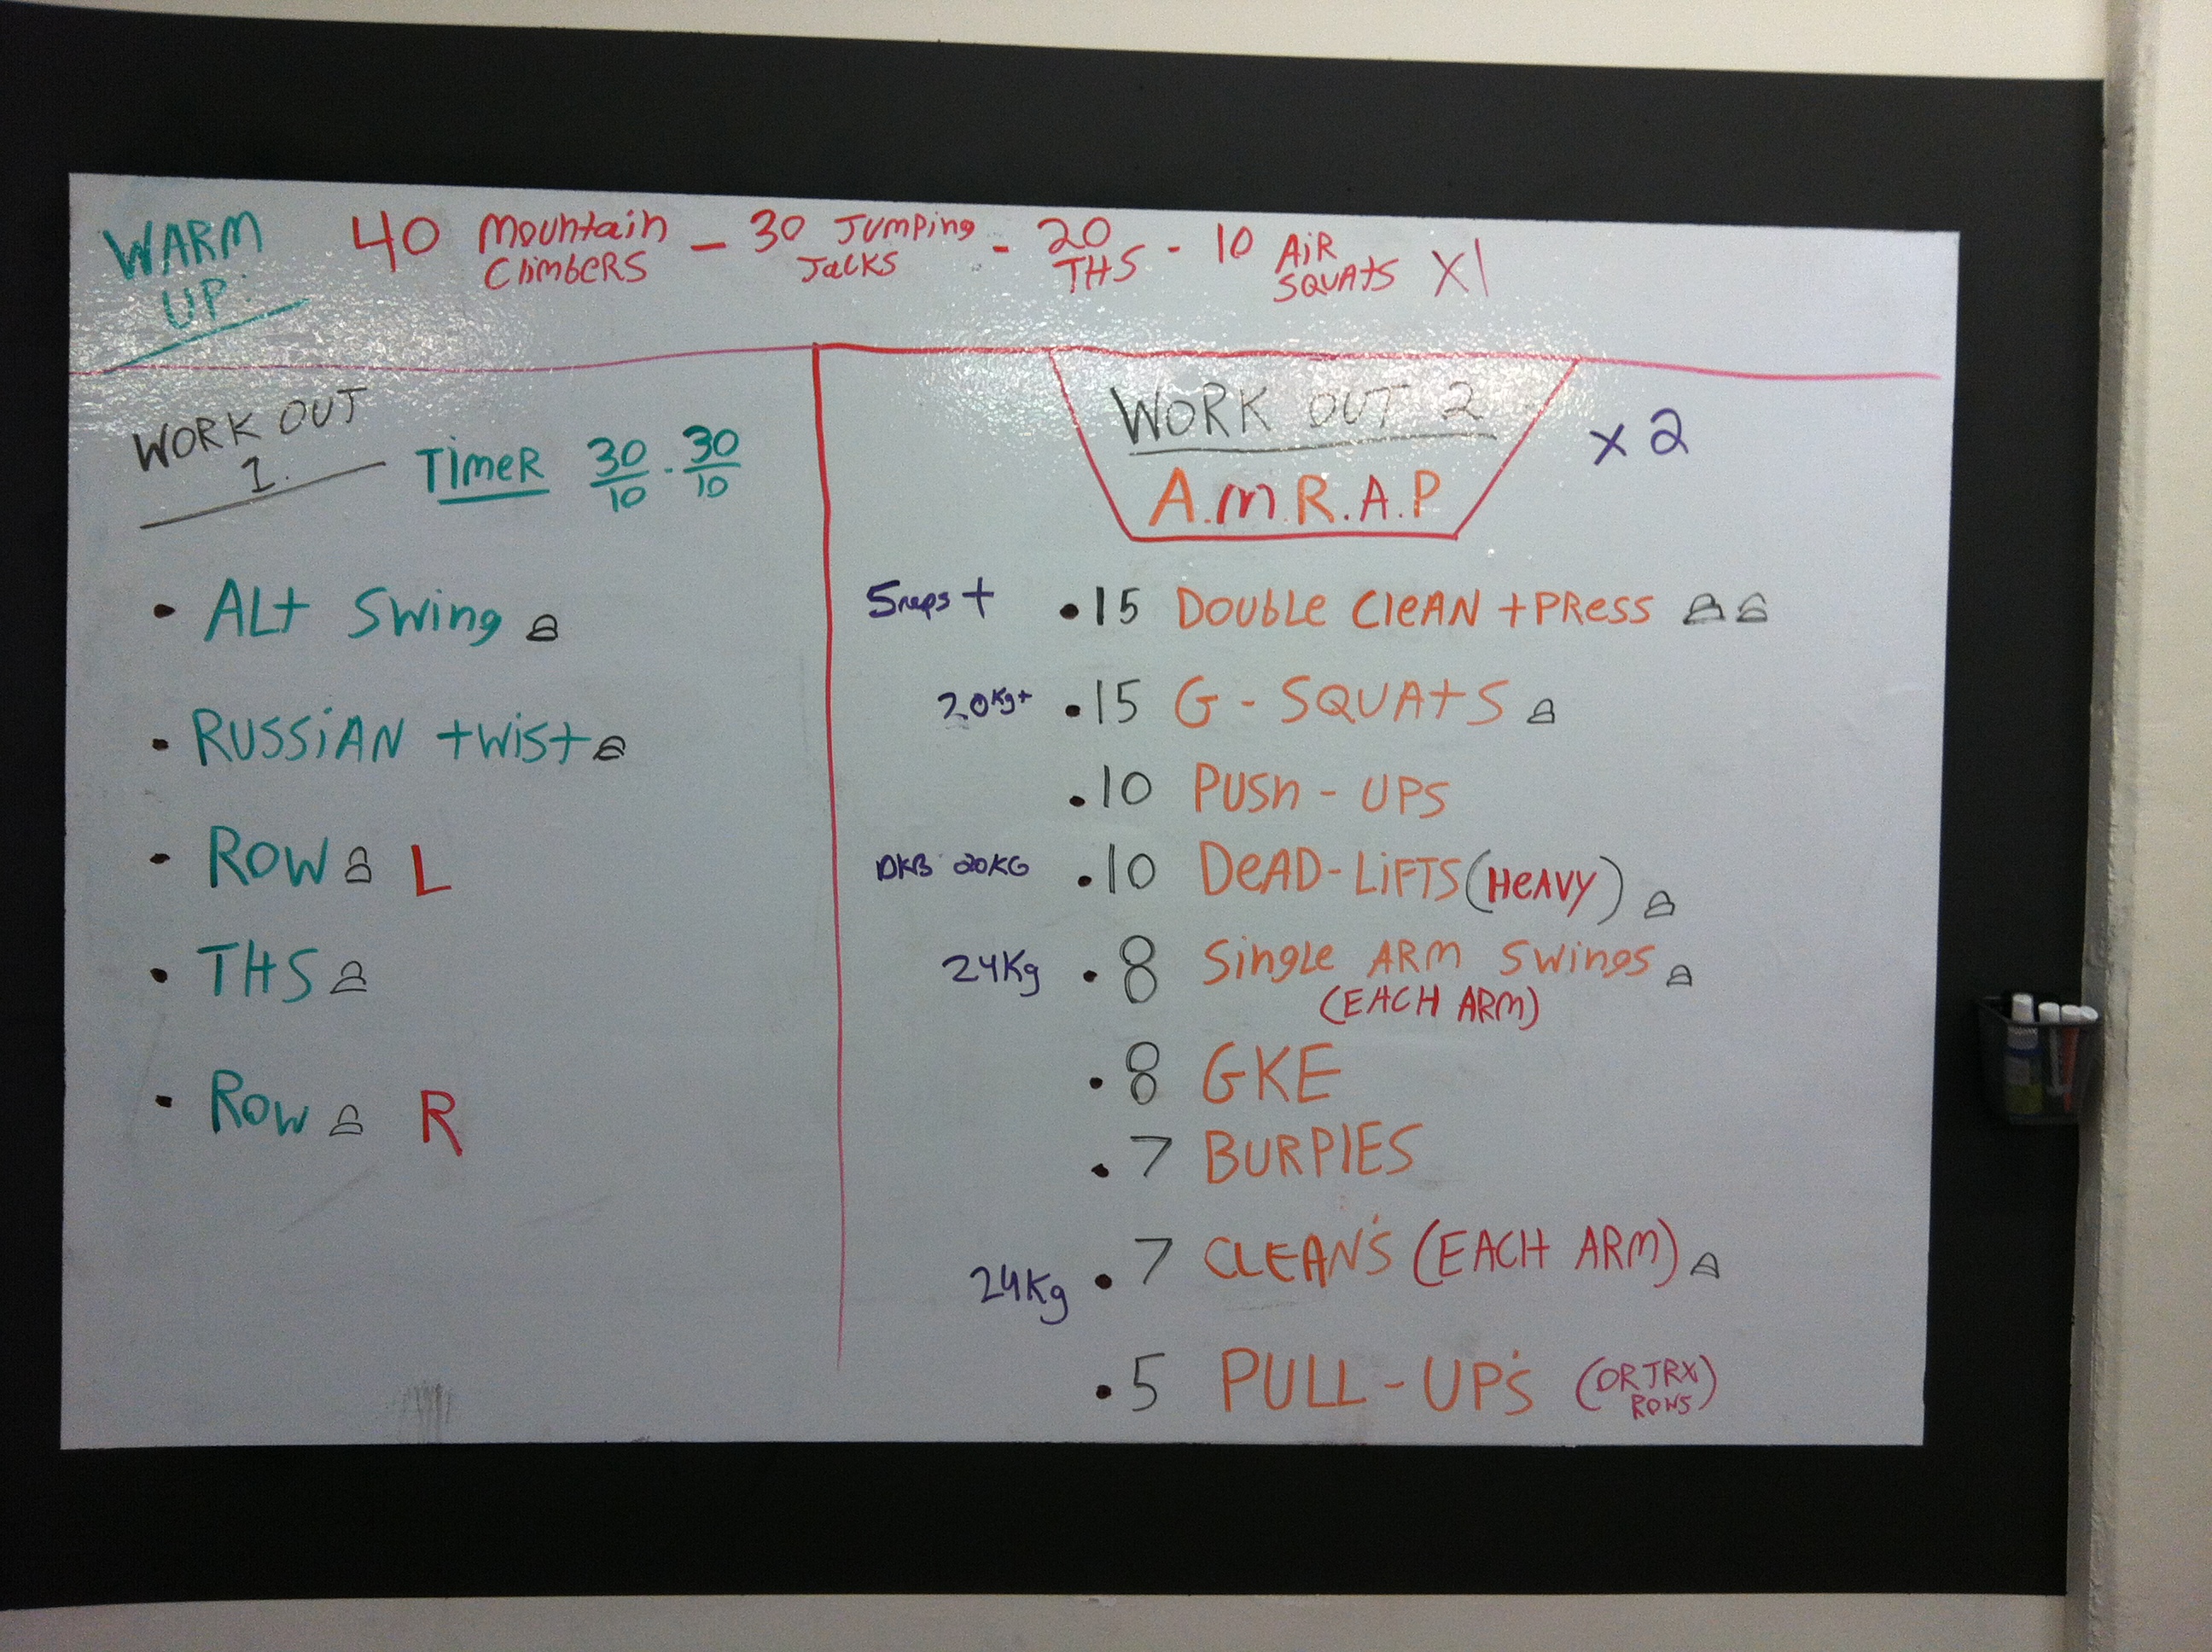 WARM UP: 40 Mountain Climbers – 30 Jumping Jacks - 20 THS - 10 AiR SQUAts X1
WORK OUT 1.
TimeR 30/10 . 30/10
• ALt Swing
• RUSSiAN twist
• ROW L
• THS
• Row R
WORK OUT 2 x 2
A.m.R.A.P
5reps + .15 DOUbLE CleAN + PRess
20Kg+ .15 G - SQUAtS
.10 PUSh - UPS
DKB 20KG .10 DeAD - LiFTS (HeAVY)
24Kg .8 Single ARM Swings
(EACH ARM)
.8 GKE
.7 BURPIES
24Kg .7 CLEAN'S (EACH ARM)
.5 PULL - UP'S (OR TRX ROWS)